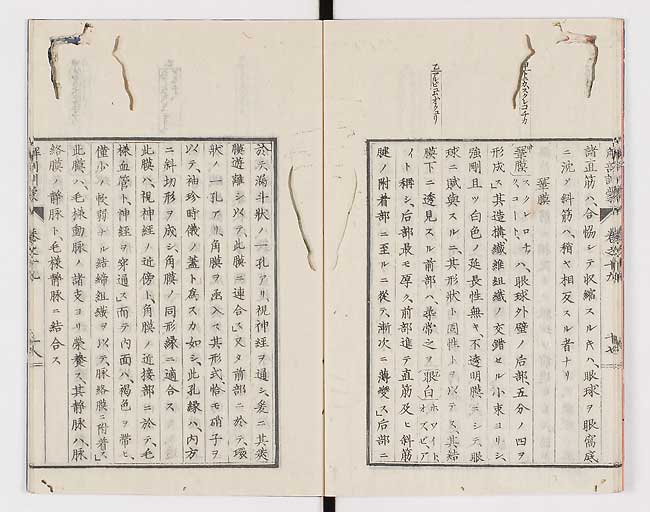 諸直筋ハ、合恊シテ收縮スルキハ、眼球ヲ眼窩底
ニ沈メ斜筋ハ、稍ヤ相反スル者ナリ
鞏膜
鞏膜 スクレロチカ ハ、眼球外壁ノ后部、五分ノ四ヲ
形成ス其造搆、纖維組織ノ交錯セル小束ヨリシ、
強剛且ツ白色ノ延長性無キ、不透明膜ニシテ眼
球ニ賦與スルニ、其形状ト固性トヲ以テス、其結
膜下ニ透見スル前部ハ、尋常之ヲ眼白 ホワイト、オフ、ゼ、ア
イト稱シ、后部最モ厚ク、前部進テ直筋及ヒ斜筋
腱ノ附着部ニ至ルニ從テ、漸次ニ薄變ス」后部ニ
於テ漏斗状ノ一孔アリ、視神經ヲ通シ、爰ニ其莢
膜遊離シ以テ、此膜ニ連合ス」又タ前部ニ於テ、環
状ノ一孔アリ、角膜ヲ函入ス其形式恰モ硝子ヲ
以テ、袖珍時儀ノ蓋ト爲スカ如シ、此孔縁ハ、内方
ニ斜切形ヲ成シ、角膜ノ同形縁ニ適合ス
此膜ハ、視神經ノ近傍ト、角膜ノ近接部ニ於テ、毛
樣血管ト、神經ヲ穿通ス」而テ内面ハ、褐色ヲ帶ヒ、
僅小ノ軟弱ナル結締組織ヲ以テ、脉絡膜ニ附着ス」
此膜ハ、毛樣動脉ノ諸支ヨリ榮養ス、其靜脉ハ、脉
絡膜ノ靜脉ト、毛樣靜脉ニ結合ス